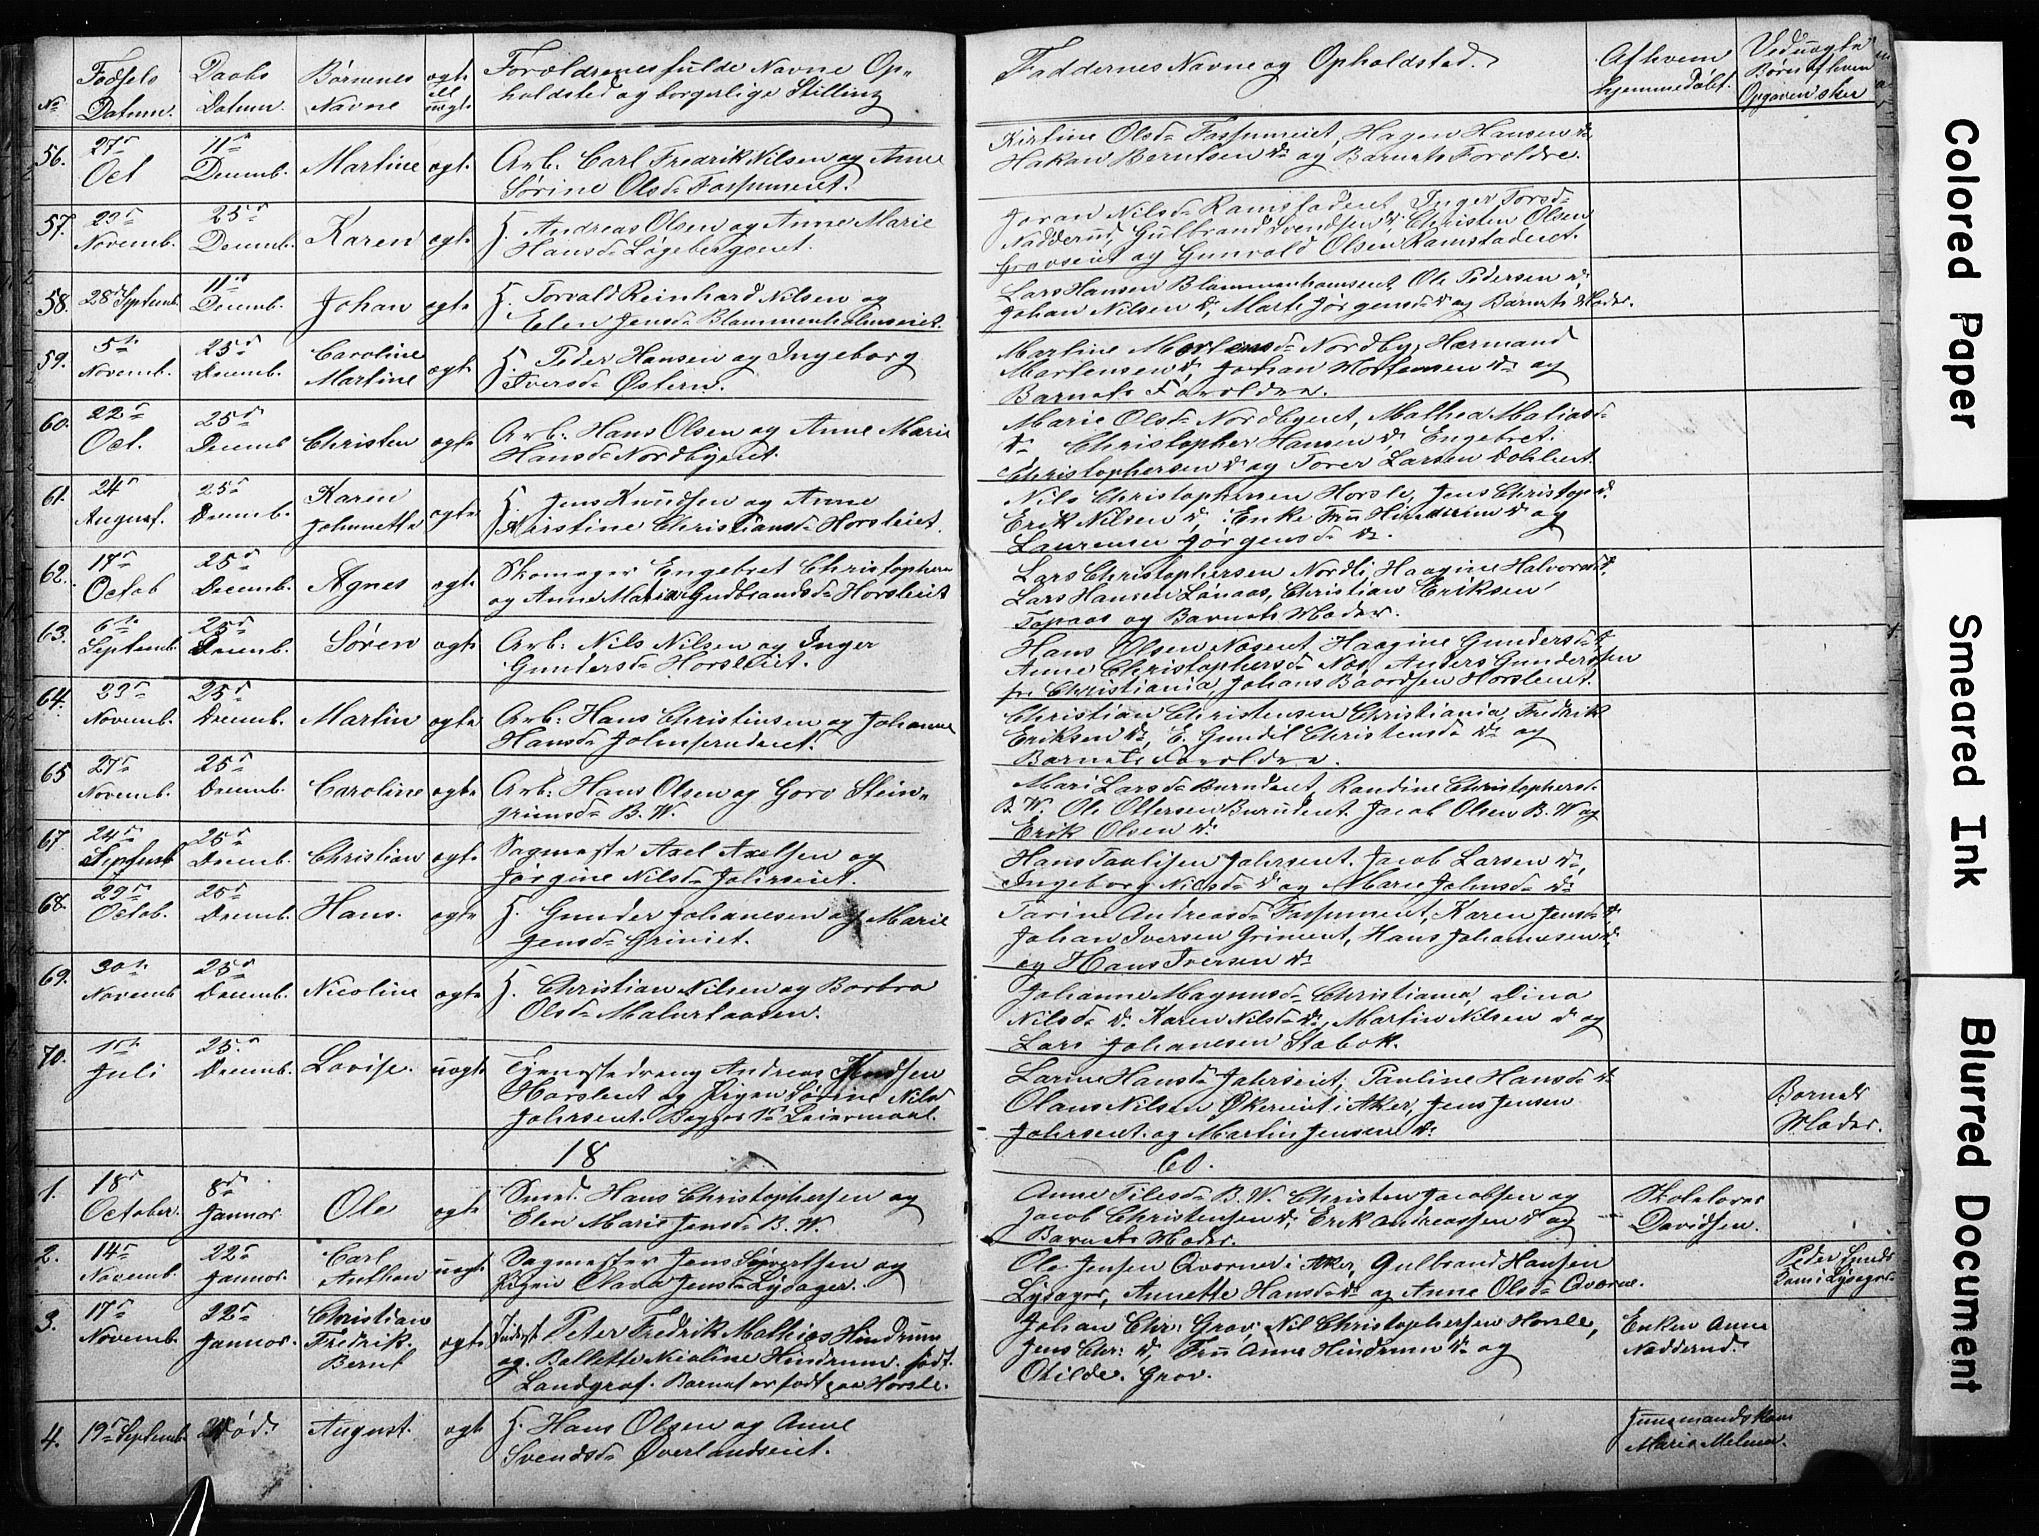 No
Fødsels Datum.
Daabs Datum.
Børnenes Navne
ægte ell uægte
Forældrenes fulde Navne Op-
holdsted og borgerlige Stilling
Faddernes Navne og Opholdsted.
Af hvem hjemmedøbt.
Ved uægte Børn af hvem Opgaven sker
56. 27de Oct 11te Decemb. Martine ægt.
Arb: Carl Fredrik Nilsen og Anne
Sørine Olsd
Kirstine Olsd Hagen Hansen do
Hakan Berntsen do og Barnets Foreldre.
57. 23de Novemb. 25de Decemb. Karen ægte
H. Andreas Olsen og Anne Marie
Hansd Løgebergeiet.
Joran Nilsd Ramstadeiet, Inger Torsd
Nadderud, Gulbrand Svendsen do, Christen Olsen
og Gunvald Olsen Ramstadeiet.
58. 28de Septemb. 11te Decemb. Johan ægte
H. Torvald Reinhard Nilsen og
Elen Jensd Blommenholmseiet.
Lars Hansen Blommenholmseiet, Ole Pedersen do,
Johan Nilsen do, Marte Jørgensd do og Barnets Moder.
59. 5te Novemb. 25de Decemb. Caroline Martine ægte
H. Peder Hansen og Ingeborg
Iversd Østern.
Martine Mortensd Nordby, Hermand
Martensen do, Johan Mortensen do og
Barnets Foroldre.
60. 22de Oct. 25de Decemb Christen ægte
Arb: Hans Olsen og Anne Marie
Hansd Nordbyeiet.
Marie Olsd Nordbyeiet, Mathea Matiasd
do Christopher Hansen do, Engebret
Christophersen do og Torer Larsen
61. 24de August. 25de Decemb. Karen Johannette ægte
H. Jens Knudsen og Anne
Kirstine Christiansd Horsleiet.
Nils Christophersen Horsle, Jens Christop do
Erik Nilsen do, Enke Fru do og
Laurense Jørgensd do.
62. 17de Octob 25de Decemb. Agnes ægte
Skomager Engebret Christophersen
og Anne Maria Gudbrandsd Horsleiet
Lars Christophersen Nordli, Haagine Halvorsd do,
Lars Hansen Christian Eriksen
Topaas og Barnets Moder.
63. 6te Septemb. 25de Decemb. Søren ægte
Arb: Nils Nilsen og Inger
Gundersd Horsleiet.
Hans Olsen Noseiet, Haagine Gundersd do,
Anne Christophersd Nos, Anders Gundersen
fr Christiania, Johans Baardsen Horsleiet.
64. 23de Novemb. 25de Decemb. Martin ægte
Arb: Hans Christensen og Johanne
Hansd
Christian Christensen Christiania, Fredrik
Eriksen do, E. Gundil Christensd do og
Barnets Foroldre.
65 27de Novemb. 25de Decemb. Caroline ægte
Arb: Hans Olsen og Goro Stein-
grimsd B.W.
Mari Larsd Burudeiet, Randine Christophersd
B.W. Ole Ottersen Burudeiet. Jacob Olsen B.W og
Erik Olsen do
67 24de Septemb 25de Decemb. Christian ægte
Sagmester Axel Axelsen og
Jørgine Nilsd Jahrseiet.
Hans Paulisen Jahrseiet. Jacob Larsen do,
Ingeborg Nilsd do og Marie Johnsd do
68. 22de Octob. 25de Decemb. Hans. ægte
H. Gunder Johanesen og Marie
Jensd Grinieiet.
Tarine Andreasd Karen Jensd do,
Johan Iversen Grinieiet, Hans Johannesen do,
og Hans Iversen do
69. 30te Novemb 25de Decemb. Nicoline ægte
H. Christian Nilsen og Barbra
Olsd
Johanne Magnusd Christiania, Dina
Nilsd do. Karen Nilsd do, Martin Nilsen do og
Lars Johanesen Stabæk.
70. 1ste Juli 25de Decemb. Lovise. uægte
Tjenestedreng Andreas Knudsen
Horsleiet og Pigen Sørine Nilsd
Jahrseiet. Begges 1ste Leiermaal.
Larine Hansd Jahrseiet, Pauline Hansd do
Olaus Nilsen Økerneiet i Aker, Jens Jensen
Jahrseiet. og Martin Jensen do.
Barnets Moder.
18
60.
1. 18de October. 8de Januar. Ole ægte
Smed. Hans Christophersen og
Elen Marie Jensd B.W.
Anne Nilsd B.W. Christen Jacobsen og
Jacob Christensen do, Erik Andreassen do og
Barnets Moder.
Skolelærer Davidsen.
2. 14de Novemb. 22de Januar. Carl Anthon uægt
Sagmester Jens Syvertsen og
Pigen Olava Jensd Lysager.
Ole Jensen Qværner i Aker, Gulbrand Hansen
Lysager, Annette Hansd do og Anne Olsd Qværne.
Peder Lysager
3. 17de Novemb. 22de Januar. Christian Fredrik Bernt ægte
Peter Fredrik Mathias Hindrum
og Bollette Nicoline Hindrum født
Landgraf. Barnet er født paa Horsle.
Johan Chr: Grav, Nil Christophersen Horsle,
Jens Chr: do, Fru Anne Hindrum do og
Otilde Grav.
Enken Anne Nadderud.
4. 19de Septemb. Død. August. ægt
H. Hans Olsen og Anne
Svendsd Øverlandseiet.
Marie
Colored Paper
Smeared Ink
Blurred Document